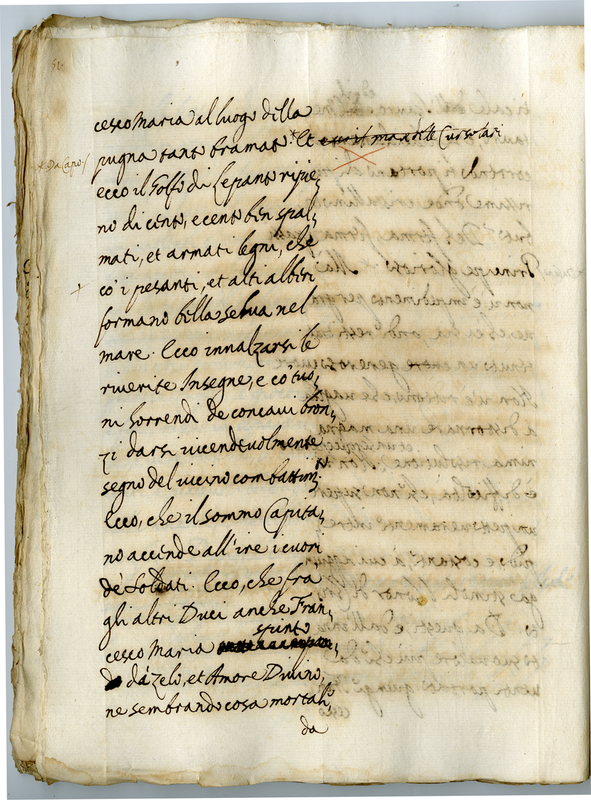 cesco Maria al luogo della
* Da Capo /
pugna tanto bramato. * Et Cursolari
ecco il Golfo di Lepanto ripie,
no di cento, e cento ben spal,
mati, et armati legni, che
co' i pesanti, et alti alberi
formano bella selva nel
mare. Ecco innalzarsi le
riverite Insegne, e co' tuo,
ni horrendi de concavi bron,
zi darsi vicendevolmente
segno del vicino combattim.to
Ecco, che il sommo Capita,
no accende all'ire i cuori
de' Soldati. Ecco, che fra
gli altri Duci anche Fran,
cesco Maria spinto
da zelo, et Amore Divino,
ne sembrando cosa mortale,
da